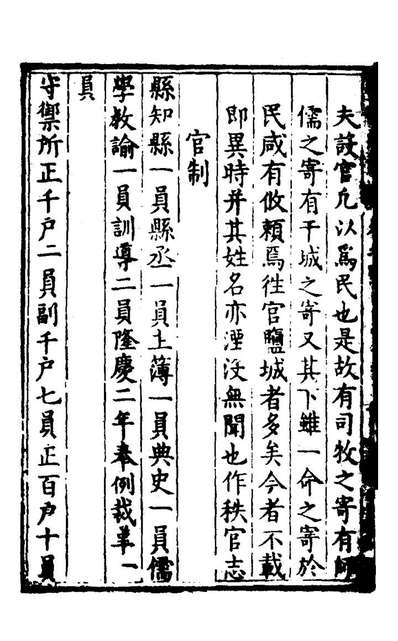 夫設官凡以爲民也是故有司牧之寄有師
儒之寄有干城之寄又其下雖一命之寄於
民咸有攸賴焉徃官鹽城者多矣今者不載
即異時并其姓名亦湮沒無聞也作秩官志
官制
縣知縣一員縣丞一員主簿一員典史一員儒
學教諭一員訓導二員隆慶二年奉例裁革一
員
守禦所正千户二員副千户七員正百户十員